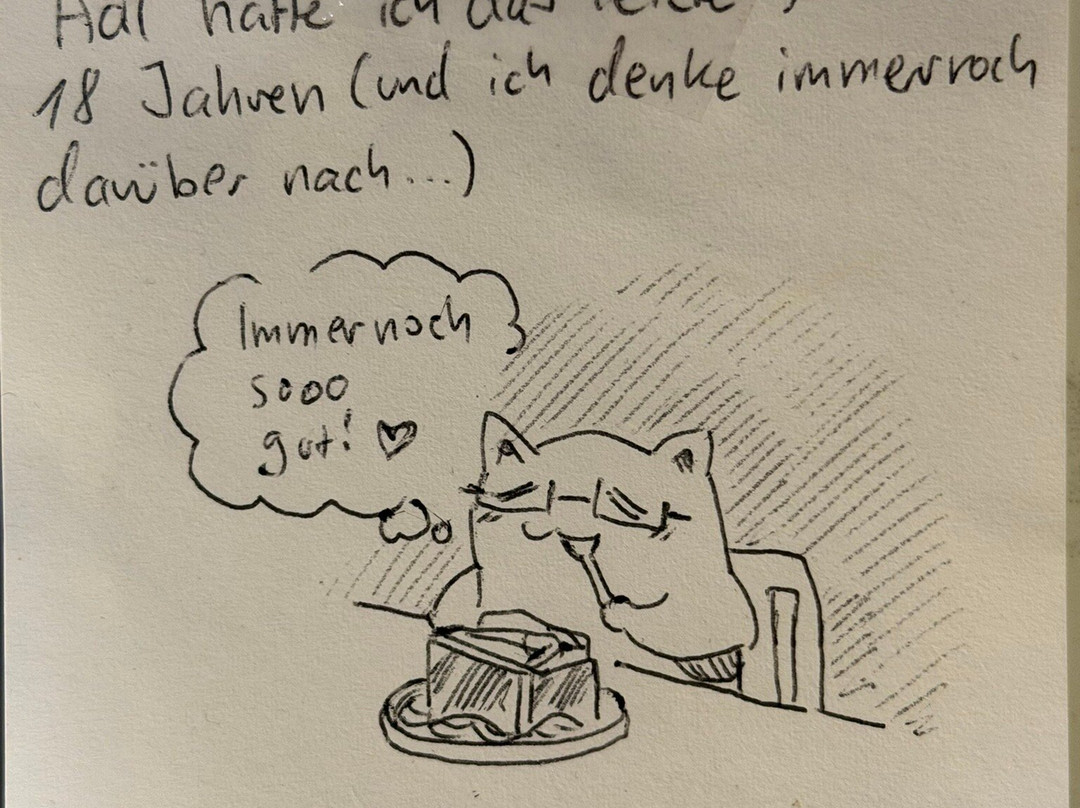 hatte ich das
18 Jahren (und ich denke immernoch
darüber nach...)
Immernoch
sooo
gut! ♥